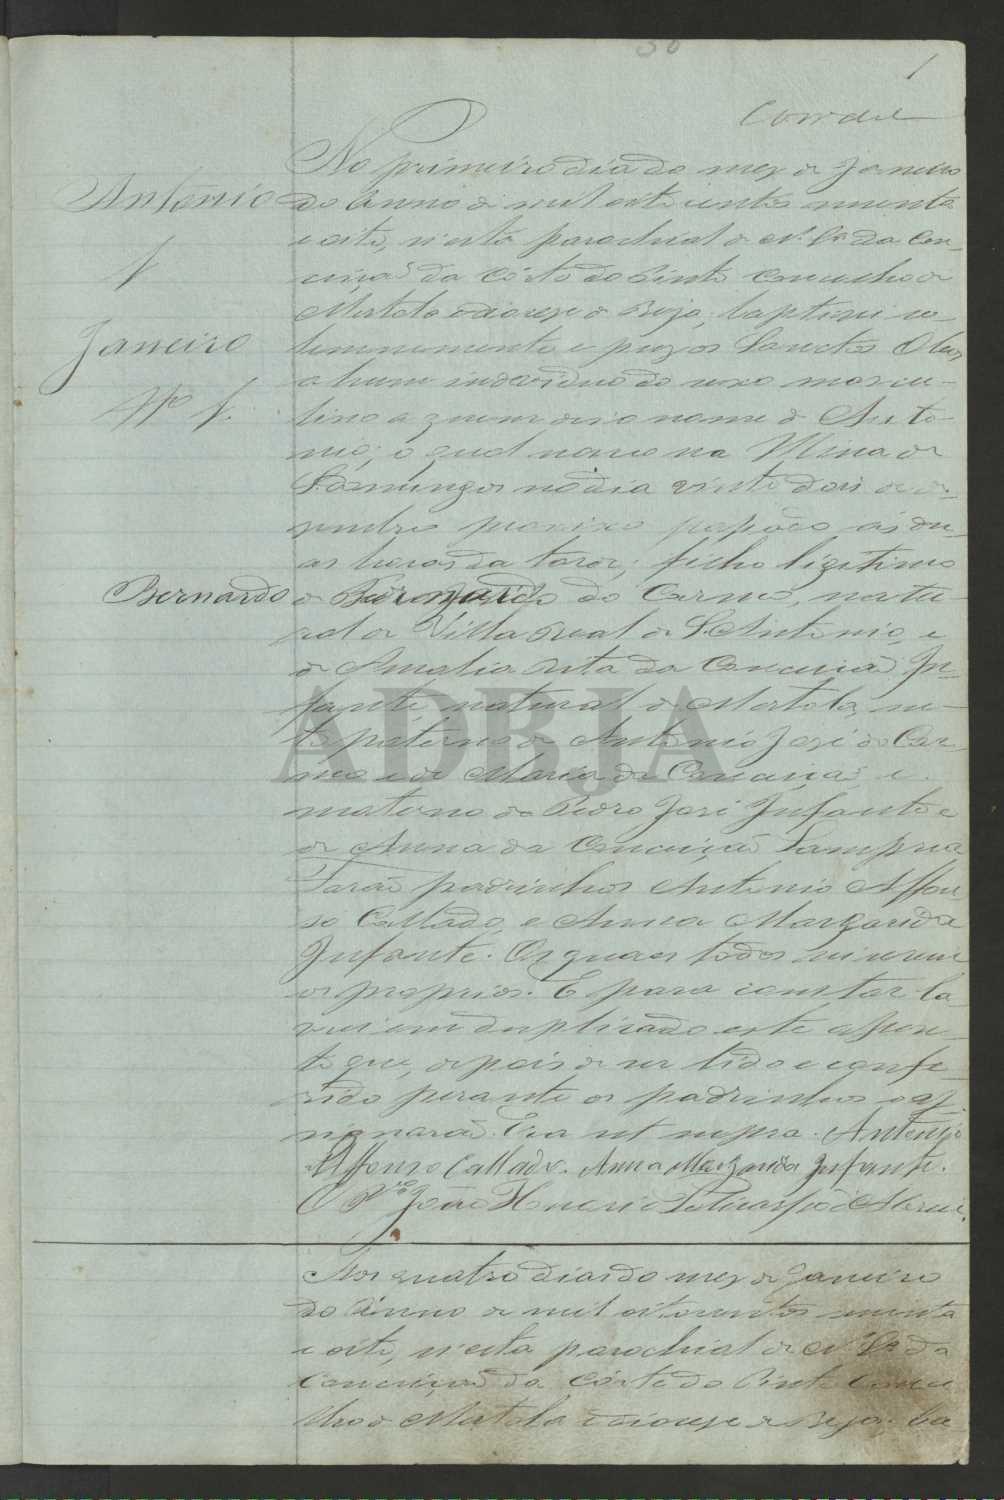 1
No primeiro dia do mez de Janeiro
do Anno de mil oitocentos
e oito, n'esta parochial de N. Sra. da Con-
ceição da Côrte do Pinto Concelho de
Mertola diocese de Beja, baptizei so-
lemnemente e puz os Sanctos Oleos
a hum individuo do sexo mascu-
lino a quem dei o nome de Anto-
nio; o qual nasceo na Mina de
S. Domingos no dia vinte dois de de-
zembro proximo passado ás du-
as horas da tarde; filho ligitimo
de do Carmo, natu-
ral de Villa Real de S. Antonio, e
de Amalia Rita da Conceição In-
fante, natural de Mertola, ne-
to paterno de Antonio José do Car-
mo e de Maria da Conceição e
materno de Pedro José Infante e
de Anna da Conceição
Farão padrinhos Antonio Affon-
so Callado, e Anna Margarida
Infante. Os quaes todos
os proprios. E para constar la-
vrei em duplicado este assen-
to que, depois de ser lido e confe-
rido perante os padrinhos o as-
signarão. Era ut supra. Antonio
Affonso Callado. Anna Margarida Infante.
O João
Antonio
f
Janeiro
Nº 1.
Bernardo
Aos quatro dias do mez de Janeiro
do Anno de mil oitocentos
e oito, n'esta parochial de N. Sra. da
Conceição da Côrte do Pinto Conce
lho de Mertola diocese de Beja, ba
ADBJA